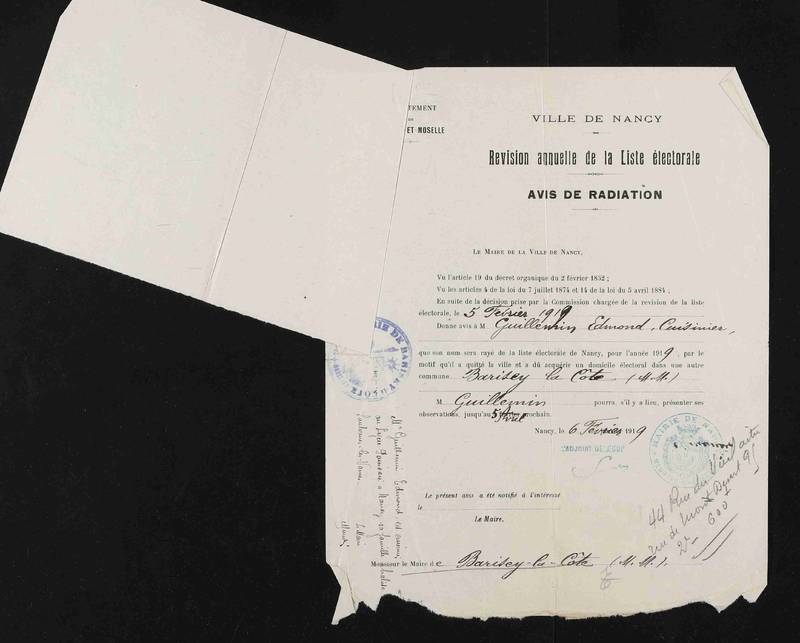 TEMENT
DE
ET MOSELLE
VILLE DE NANCY
Revision annuelle de la Liste électorale
AVIS DE RADIATION
LE MAIRE DE LA VILLE DE NANCY,
Vu l'article 19 du décret organique du 2 février 1852 ;
Vu les articles 4 de la loi du 7 juillet 1874 et 14 de la loi du 5 avril 1884 ;
En suite de la décision prise par la Commission chargée de la revision de la liste
électorale, le 5 Février 1919
Donne avis à M. Guillemin Edmond, Cuisinier,
que son nom sera rayé de la liste électorale de Nancy, pour l'année 1919, par le
motif qu'il a quitté la ville et a dû acquérir un domicile électoral dans une autre
commune Barisey la Côte (M.M.)
M. Guillemin pourra, s'il y a lieu, présenter ses
observations, jusqu'au 5 Avril prochain.
Nancy, le 6 Février 1919
L'ADJOINT DÉLÉGUÉ
MAIRIE DE NANCY
Le présent avis a été notifié à l'intéressé
le
Le Maire,
Monsieur le Maire de Barisey-la-Côte (M.M.).
Mr Guillemin Edmond est
a Nancy sa famille
44 Rue du
rue de Mont Désert 95
600